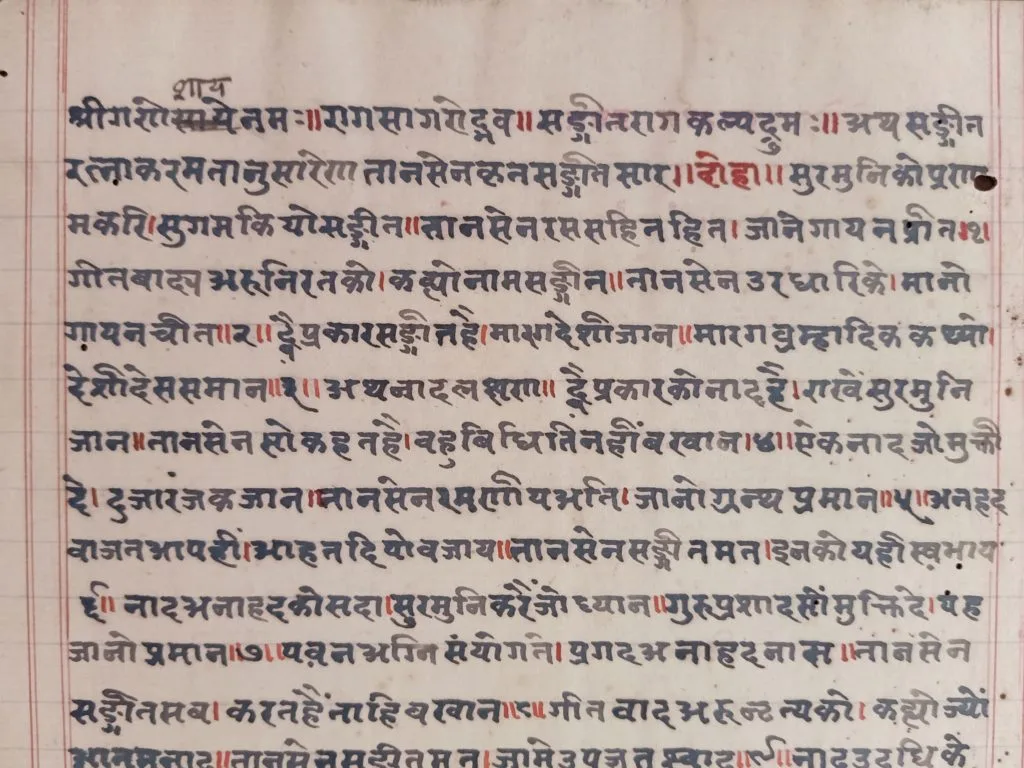 शाय
श्रीगणेशायेनमः॥रागसागरोद्भव॥सङ्गीतरागकल्पद्रुमः॥अथसङ्गीत
रत्नाकरमतानुसारेणतानसेनकृतसङ्गीतसार॥दोहा॥सुरमुनिकोप्रणा
मकरि।सुगमकियोसङ्गीत॥तानसेनरससहितहित।जानेगायनप्रीत।१।
गीतबाद्यअरुनिरतको।कह्योनामसङ्गीत॥तानसेनउरधारिके।मानो
गायनचीत॥२॥द्वैप्रकारसङ्गीतहै।मार्गदेशीजान॥मारगब्रम्हादिककथ्यो।
देशीदेससमान॥३॥अथनादलक्षण॥द्वैप्रकारकोनादहै।राखेंसुरमुनि
जान॥तानसेनसोकहतहै।बहुबिधितिनहींबखान।४॥ऐकनादजोमुक्ती
दे।दुजारंजकजान॥तानसेनरमणीयअति।जानोग्रन्थप्रमान॥५॥अनहद
वाजतआपहीं।आहतदियोबजाय॥तानसेनसङ्गीतमत।इनकोयहीस्वभाय
६॥नादअनाहदकोसदा।सुरमुनिकरैंजोध्यान॥गुरुप्रशादसोंमुक्तिदे।यह
जानोप्रमान॥७॥पवनअग्निसंयोगते।प्रगदअनाहदनास॥तानसेन
सङ्गीतसब।करतहैंनाहिबखान॥८॥गीतवादअरुन्टत्यको।कह्योज्यों
आतमनाद॥तानसेनसङ्गीतमत।जामेउपजतस्वाद॥९॥नादउदधिके